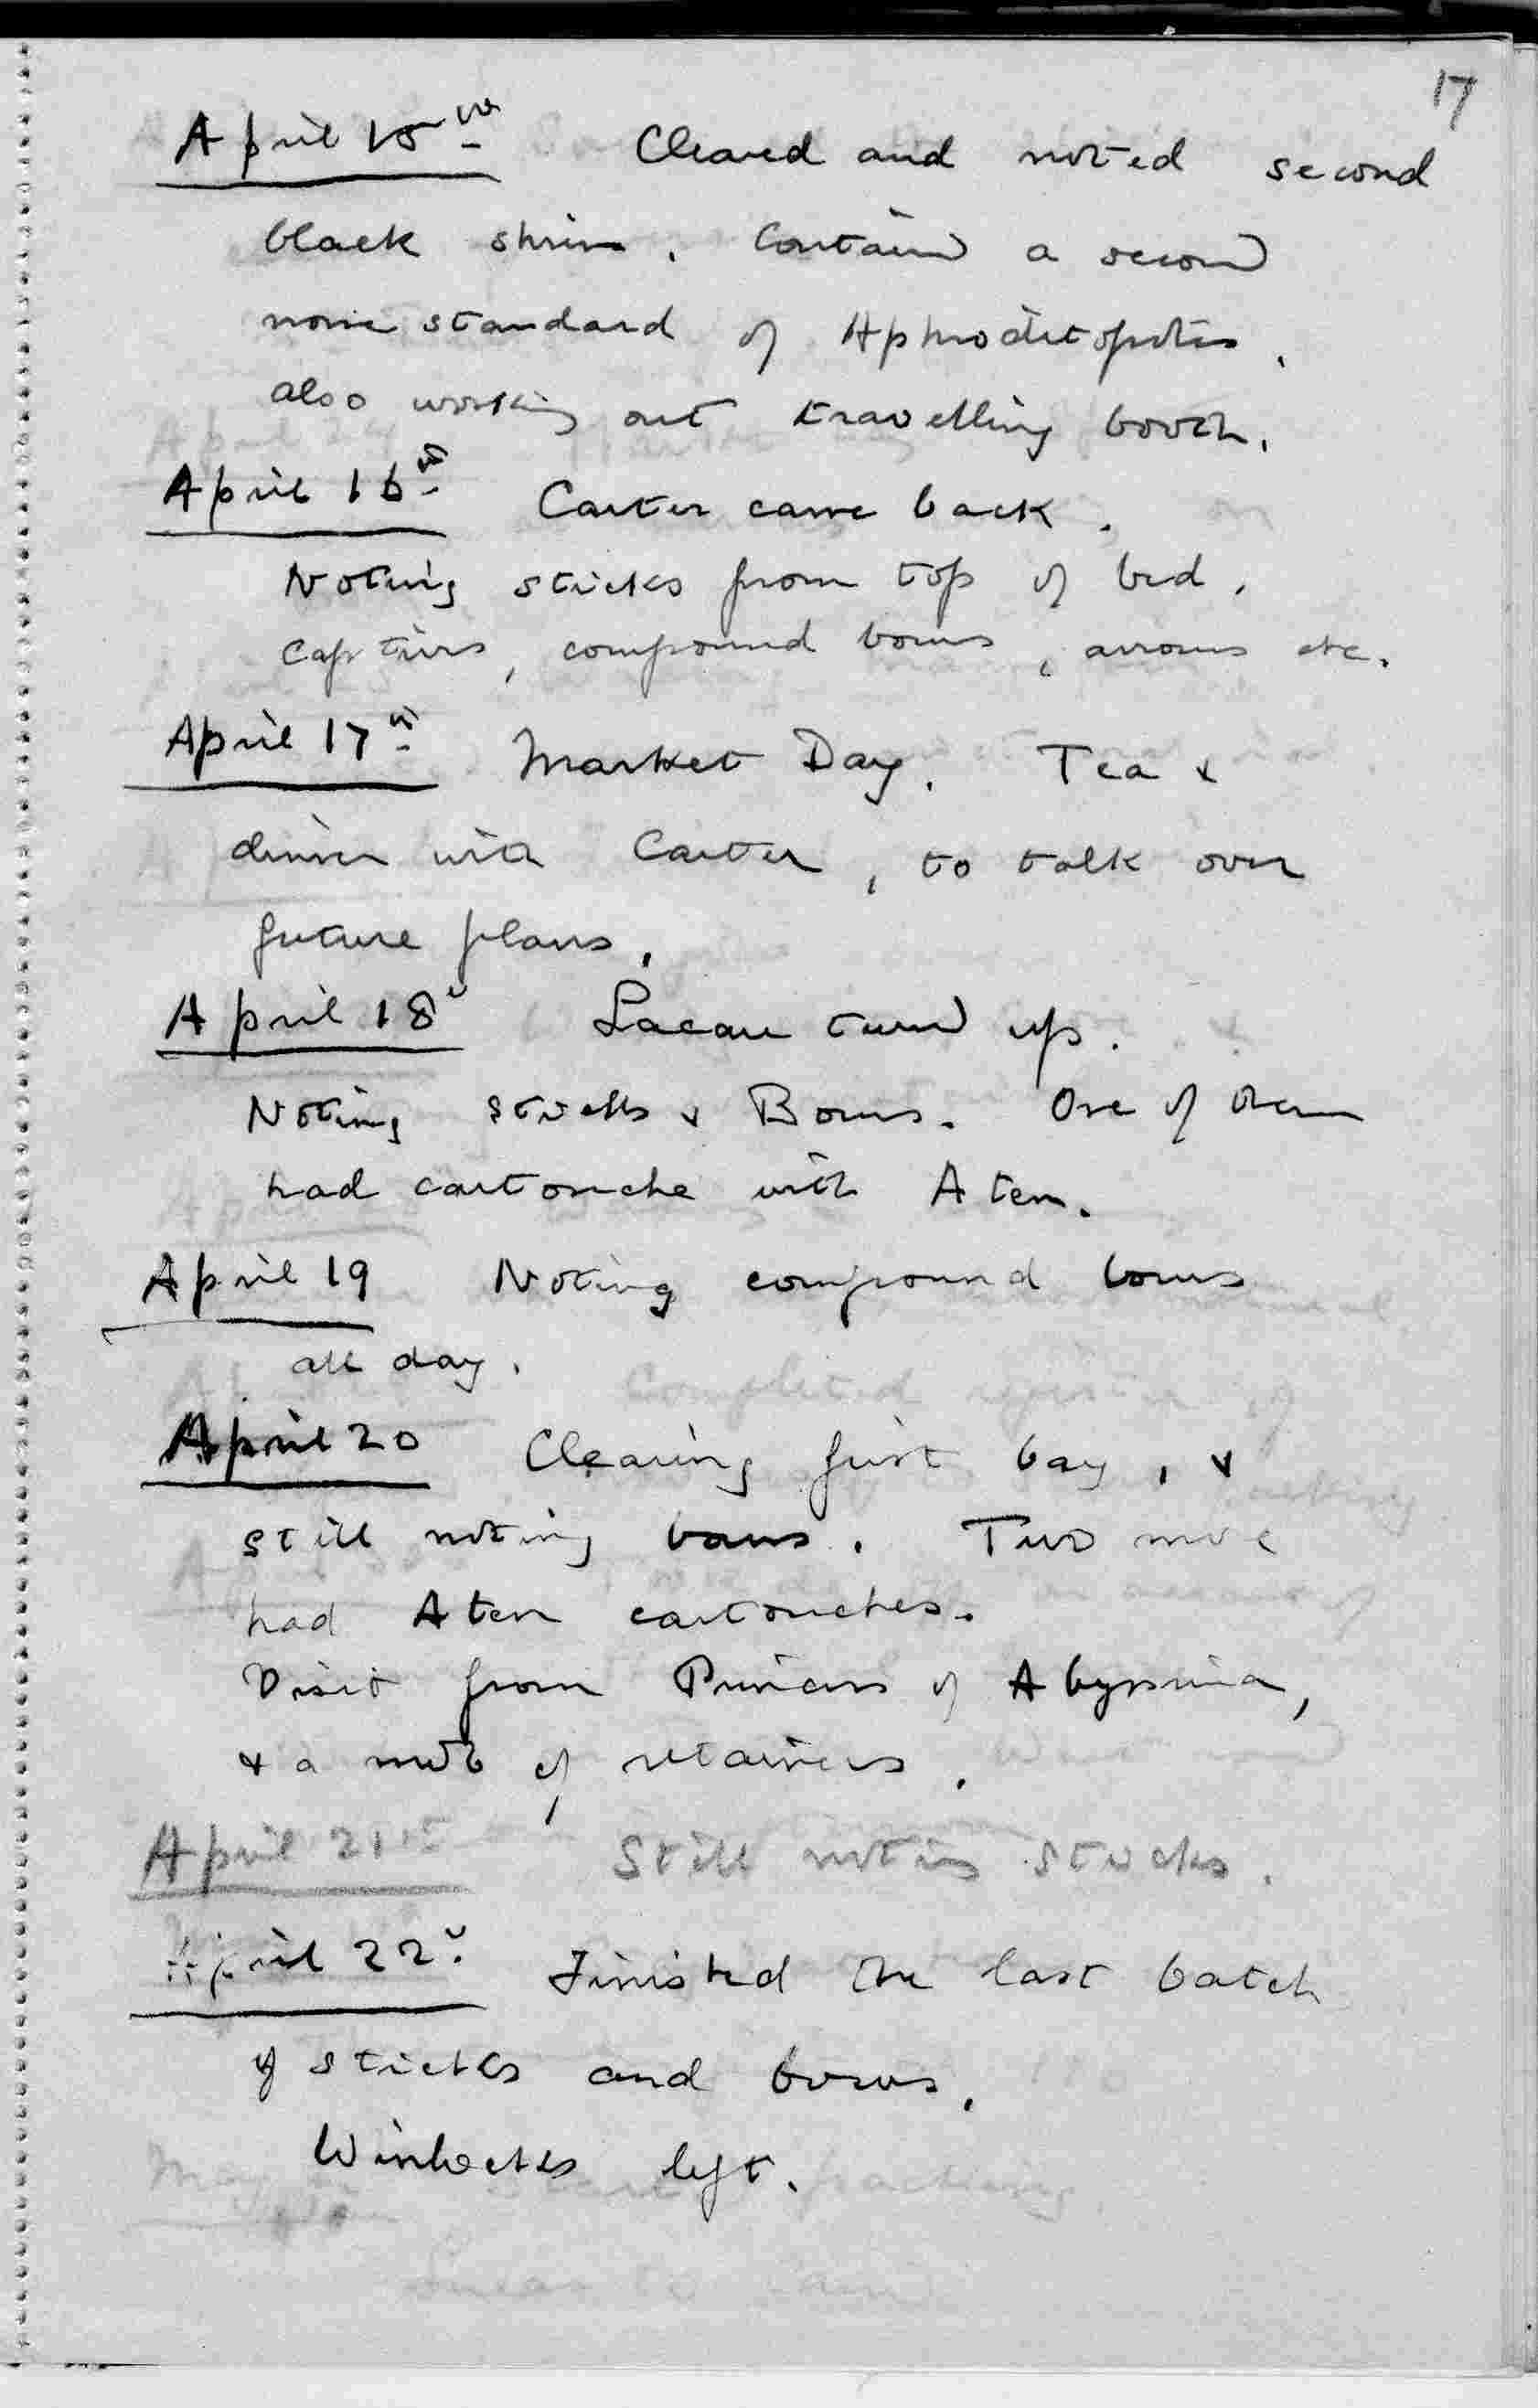 17
April 15th Cleared and noted second
black shrine. Contained a second
nome standard of Aphroditopolis.
also working out travelling booth.
April 16th Carter came back.
Noting sticks from top of bed,
captives, compound bows, arrows etc.
April 17th Market Day. Tea &
dinner with Carter, to talk over
future plans.
April 18th Lacau turned up.
Noting sticks & Bows. One of them
had cartouche with Aten.
April 19 Noting compound bows
all day.
April 20 Clearing first bay, &
still noting bows. Two more
had Aten cartouches.
Visit from Princess of Abyssinia,
& a mob of retainers.
April 21st Still noting sticks.
April 22d. Finished the last batch
of sticks and bows.
Winlocks left.